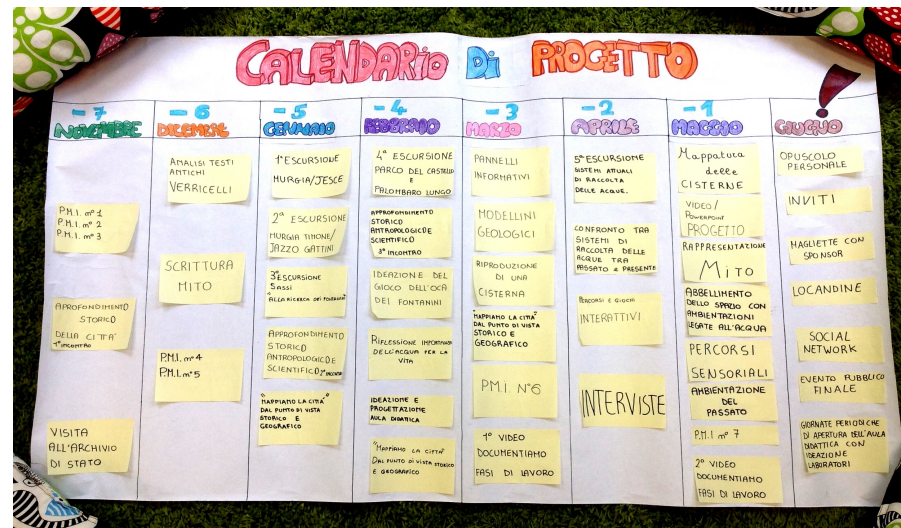 CALENDARIO Di PROGETTO
-7
NOVEMBRE
P.M.I. m° 1
P.M.I. m° 2
P.M.I. m° 3
APROFONDIMENTO
STORICO
DELLA CITTA'
1° INCONTRO
VISITA
ALL'ARCHIVIO
DI STATO
-6
DICEMBRE
ANALISI TESTI
ANTICHI
VERRICELLI
SCRITTURA
MITO
P.M.I. m° 4
P.M.I. m° 5
-5
GENNAIO
1° ESCURSIONE
MURGIA/JESCE
2ª ESCURSIONE
MURGIA TIMONE/
JAZZO GATTINI
3ª ESCURSIONE
SASSI
"ALLA RICERCA DEI FONTANINI"
APPROFONDIMENTO
STORICO
ANTROPOLOGICO E
SCIENTIFICO 2° INCONTRO
"MAPPIAMO LA CITTA'"
DAL PUNTO DI VISTA
STORICO E
GEOGRAFICO
-4
FEBBRAIO
4ª ESCURSIONE
PARCO DEL CASTELLO
E
PALOMBARO LUNGO
APPROFONDIMENTO
STORICO
ANTROPOLOGICO E
SCIENTIFICO
3° INCONTRO
IDEAZIONE DEL
GIOCO DELL'OCA
DEI FONTANINI
RIFLESSIONE IMPORTANZA
DELL'ACQUA PER LA
VITA
IDEAZIONE E
PROGETTAZIONE
AULA DIDATICA
"MAPPIAMO LA CITTA'"
DAL PUNTO DI VISTA STORICO
E GEOGRAFICO
-3
MARZO
PANNELLI
INFORMATIVI
MODELLINI
GEOLOGICI
RIPRODUZIONE
DI UNA
CISTERNA
"MAPPIAMO LA CITTA'"
DAL PUNTO DI VISTA
STORICO E
GEOGRAFICO
P.M.I. N°6
1° VIDEO
DOCUMENTIAMO
FASI DI LAVORO
-2
APRILE
5ª ESCURSIONE
SISTEMI ATTUALI
DI RACCOLTA
DELLE ACQUE.
CONFRONTO TRA
SISTEMI DI
RACCOLTA DELLE
ACQUE TRA
PASSATO E PRESENTE
PERCORSI E GIOCHI
INTERATTIVI
INTERVISTE
-1
MAGGIO
Mappatura
delle
CISTERNE
VIDEO/
POWERPOINT
PROGETTO
RAPPRESENTAZIONE
MITO
ABBELLIMENTO
DELLO SPAZIO CON
AMBIENTAZIONI
LEGATE ALL'ACQUA
PERCORSI
SENSORIALI
AMBIENTAZIONE
DEL
PASSATO
P.M.I m° 7
2° VIDEO
DOCUMENTIAMO
FASI DI LAVORO
!
GIUGNO
OPUSCOLO
PERSONALE
INVITI
MAGLIETTE CON
SPONSOR
LOCANDINE
SOCIAL
NETWORK
EVENTO PUBBLICO
FINALE
GIORNATE PERIODICHE
DI APERTURA DELL'AULA
DIDATTICA CON
IDEAZIONE
LABORATORI